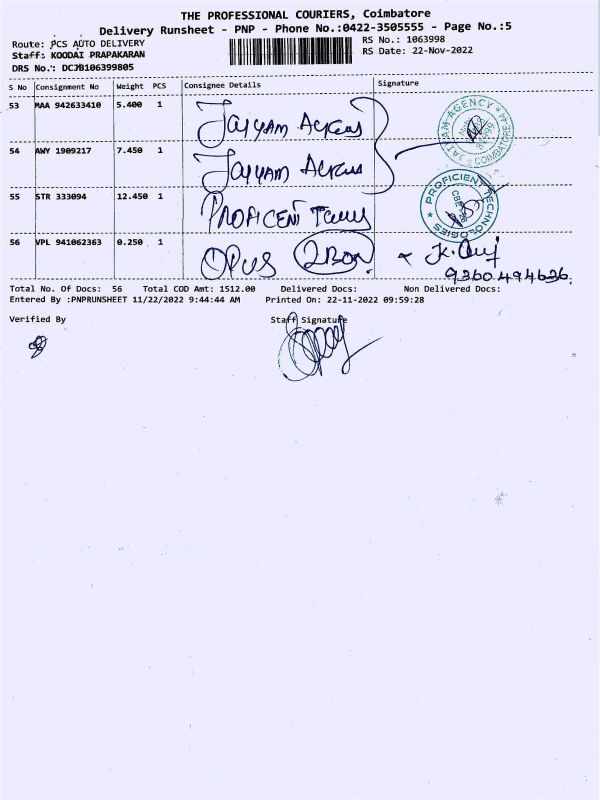 THE PROFESSIONAL COURIERS, Coimbatore
Delivery Runsheet - PNP - Phone No.:0422-3505555 - Page No.:5
Route: PCS AUTO DELIVERY
RS No.: 1063998
Staff: KOODAI PRAPAKARAN
RS Date: 22-Nov-2022
DRS No.: DCJB106399805
S No Consignment No Weight PCS Consignee Details Signature
53 MAA 942633410 5.400 1
54 AWY 1909217 7.450 1
55 STR 333094 12.450 1 PROFICENT
PROFICIENT TECHNOLOGIES
56 VPL 941062363 0.250 1 OPUS 2BOX
9360494636.
Total No. Of Docs: 56 Total COD Amt: 1512.00 Delivered Docs: Non Delivered Docs:
Entered By :PNPRUNSHEET 11/22/2022 9:44:44 AM Printed On: 22-11-2022 09:59:28
Verified By Staff Signature